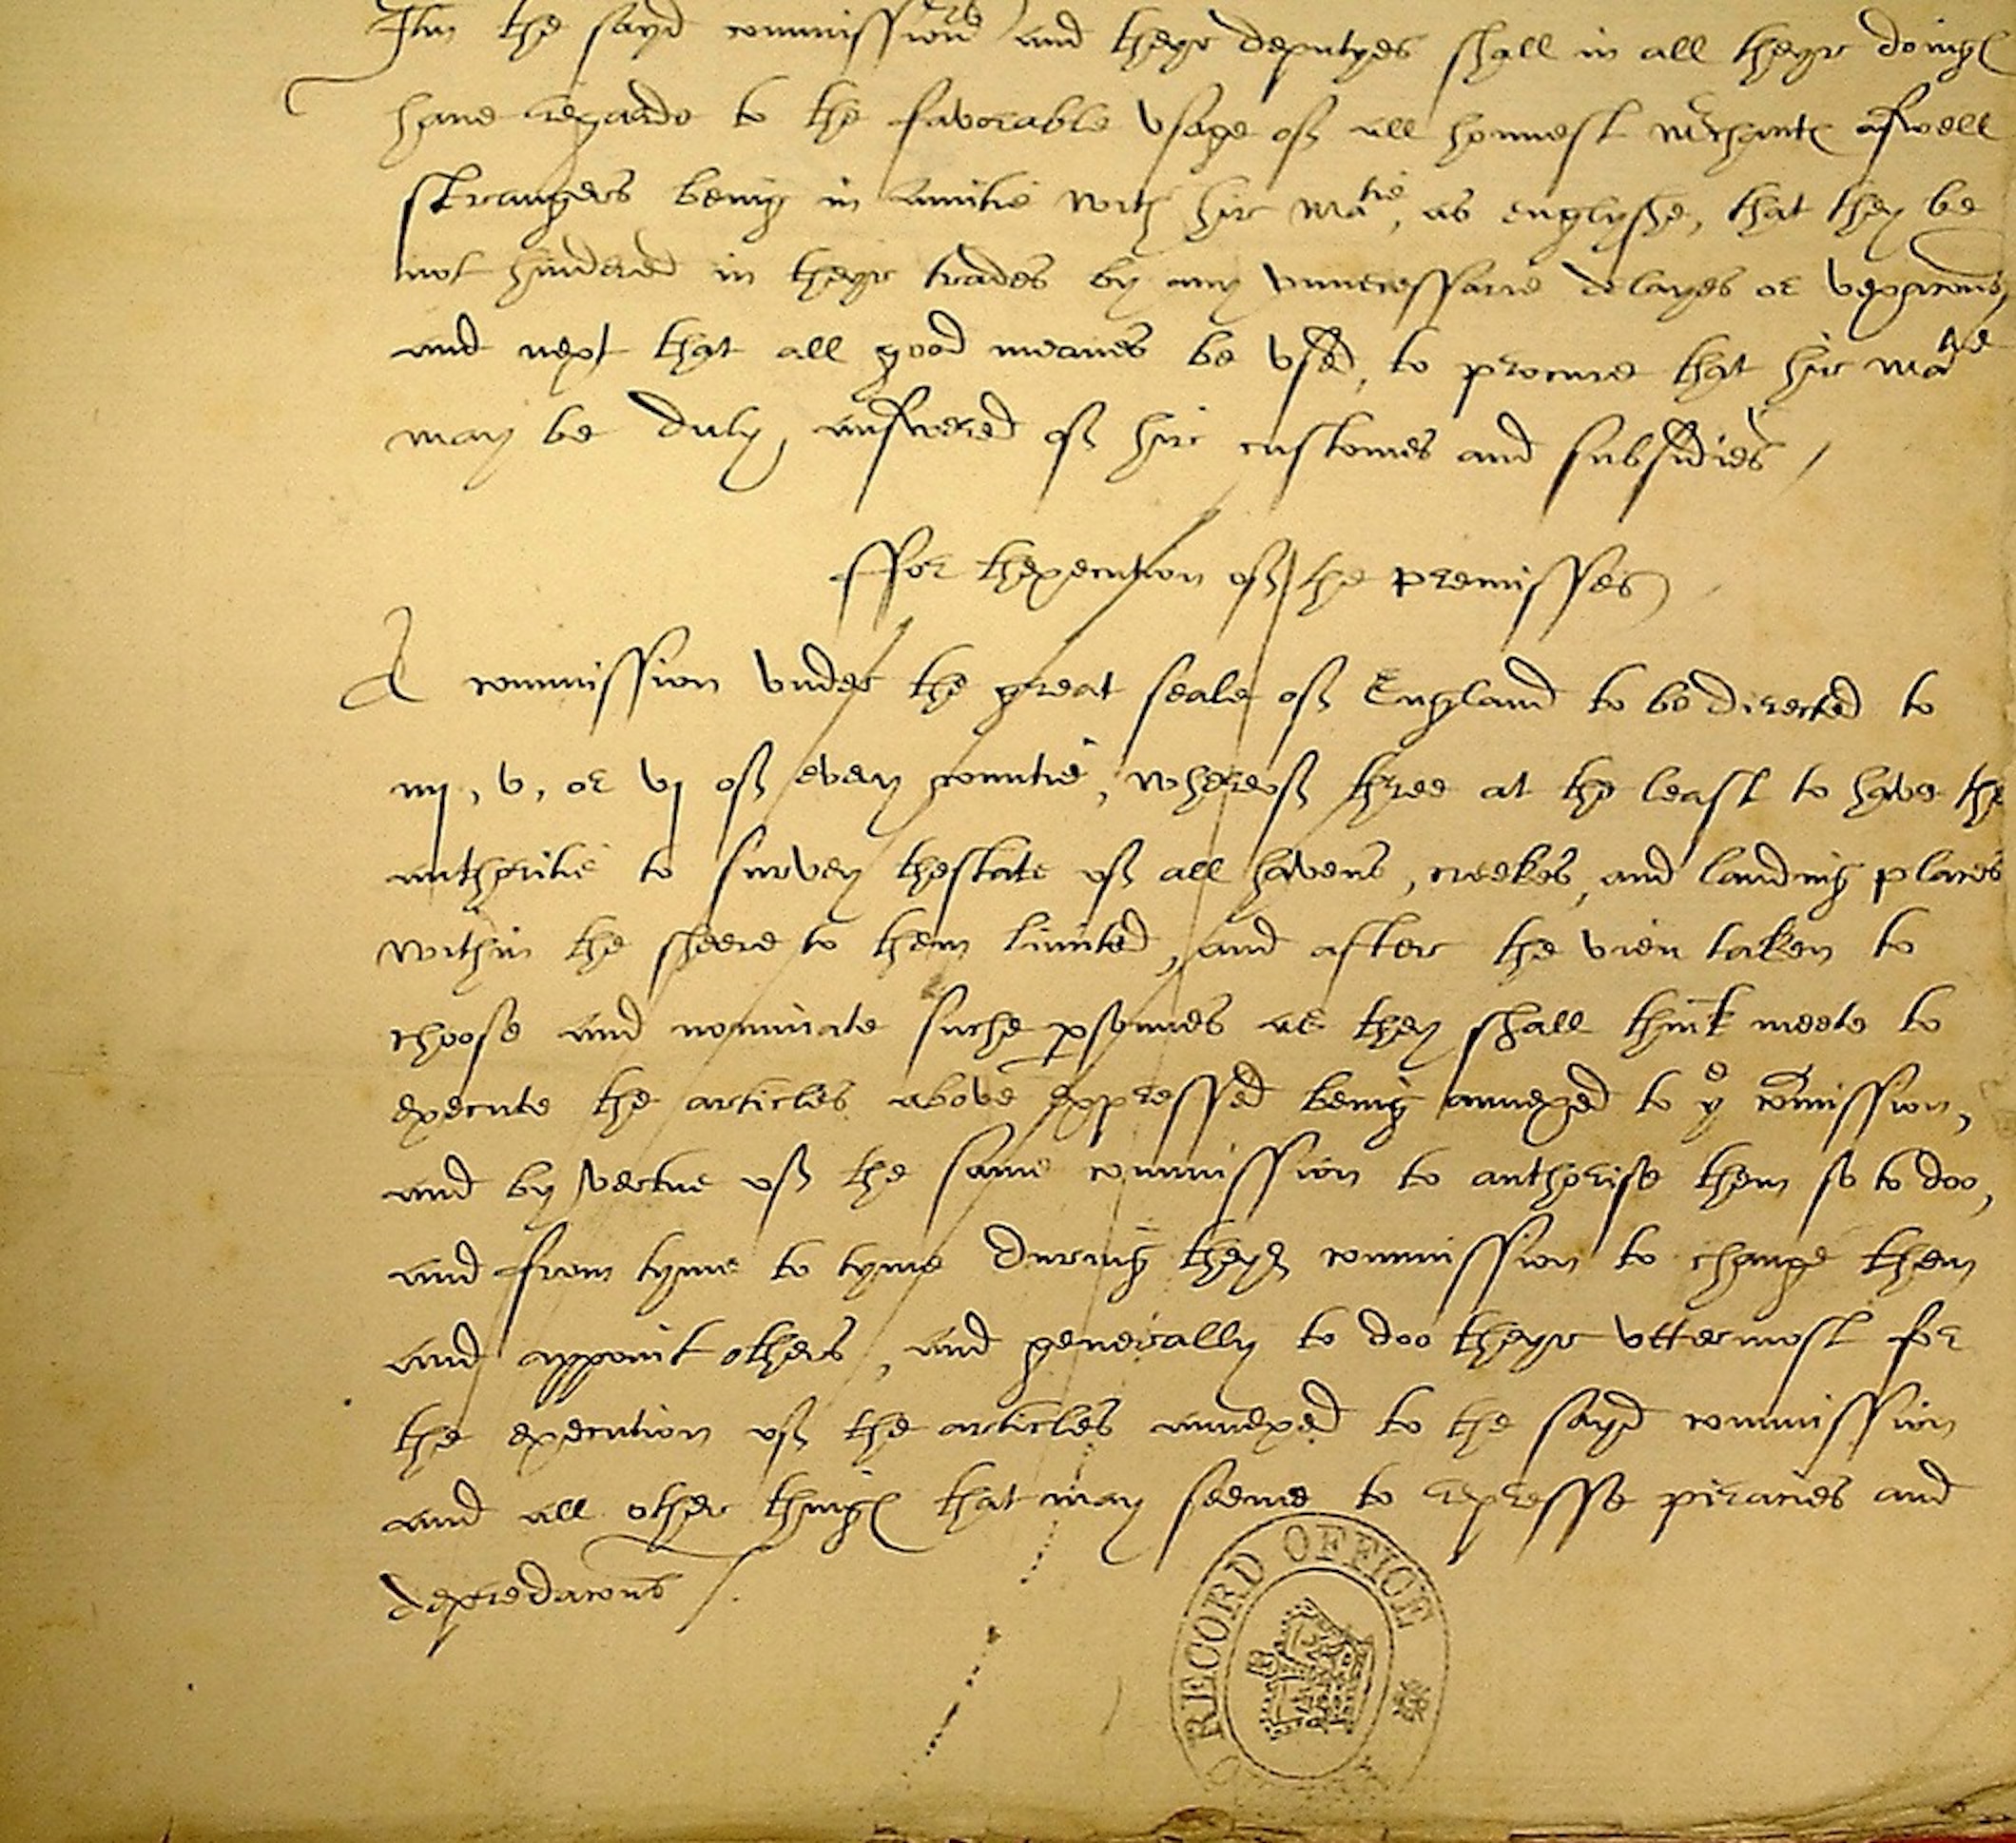 Itm the sayd commissionrs and theyr deputyes shall in all theyr doings
have regarde to the favorable vsage off all honnest mrchants aswell
strangers being in Amitie with hir Matie, as englyshe, that they be
not hindered in theyr trades by any vnnecessarie delayes or vexacions
and next that all good meanes be vsed, to procure that hir Matie
may be duly answered off hir customes and subsidies /
ffor thexecution off the premisses
A commission vnder the great seale off England to be directed to
iiij, v, or vj off every countie, whereoff three at the least to have the
authoritie to survey thestate off all havens, creekes, and landing places
within the sheere to them limited, and after the vieu taken to
choose and nominate suche psonnes as they shall think meete to
execute the articles above expressed being annexed to ye comission,
and by vertue off the same commission to authorise them so to doo,
and from tyme to tyme during theyr commission to change them
and appoint others, and generally to doo theyr vttermost for
the execution off the articles annexed to the sayd commission
and all other things that may seeme to represse piracies and
depredacons /.
RECORD OFFICE